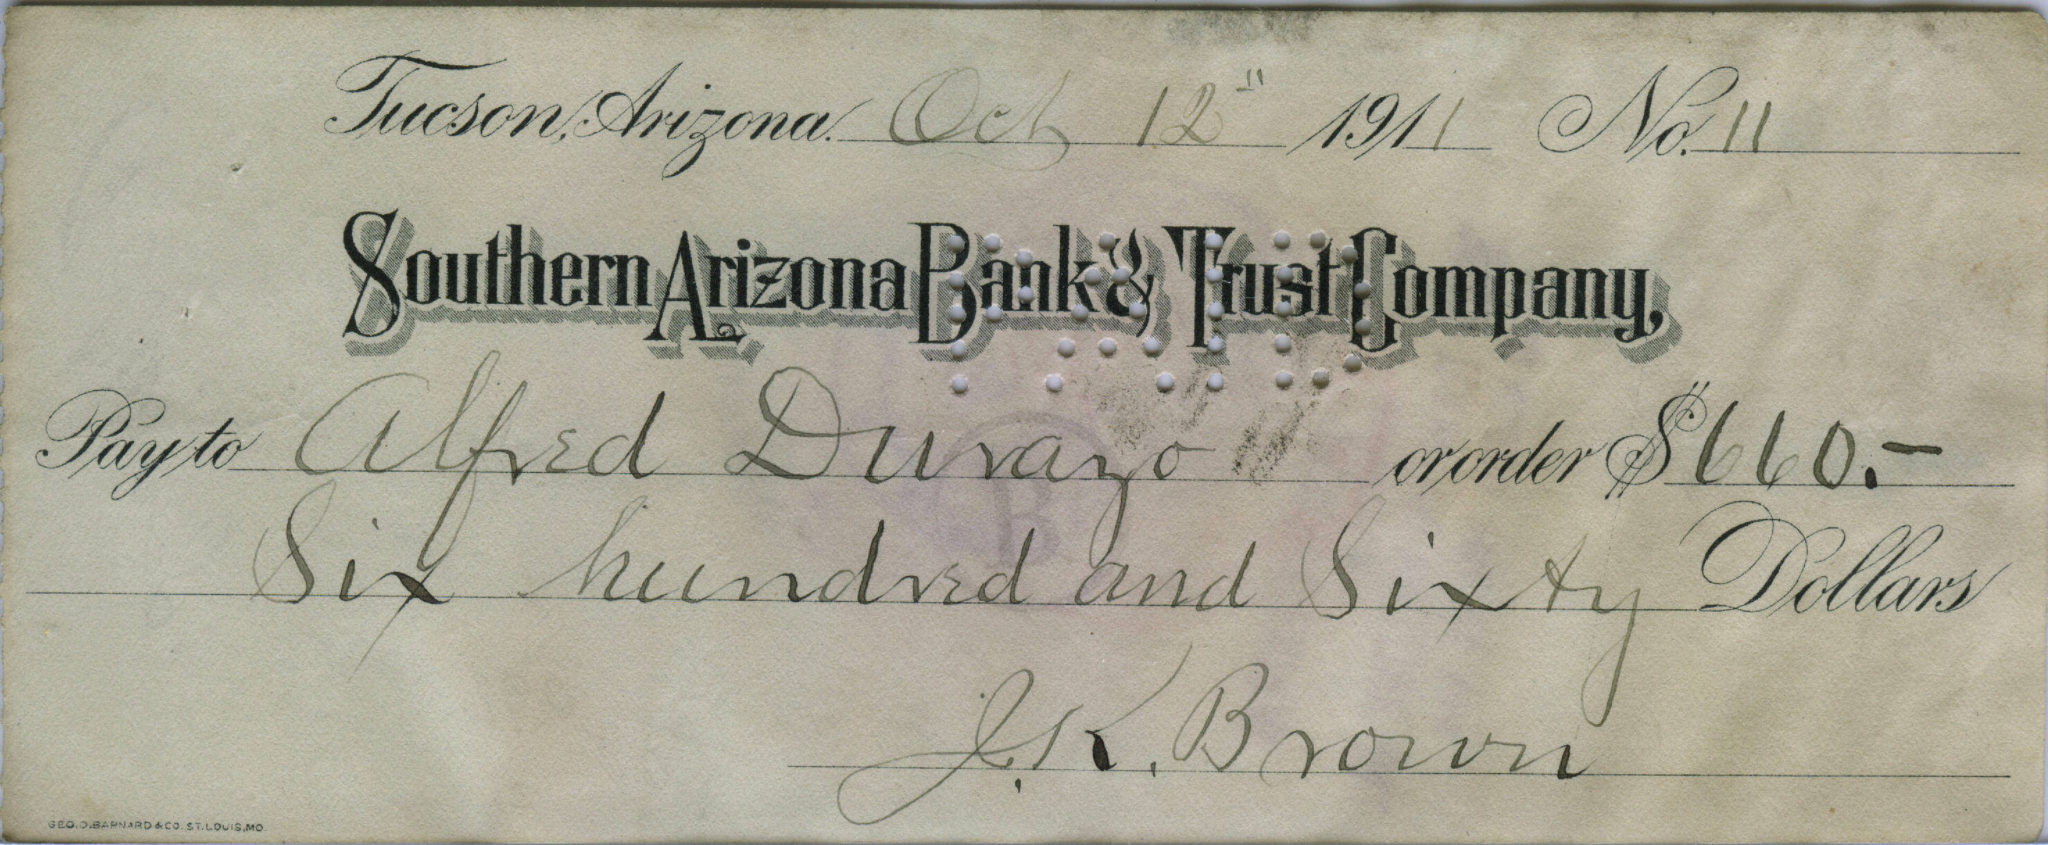 Tucson, Arizona. Oct 12" 1911 No. 11
Southern Arizona Bank & Trust Company,
PAID
Pay to Alfred Durazo or order $660.-
B
Six hundred and Sixty Dollars
J. K. Brown
GEO. D. BARNARD & CO. ST. LOUIS, MO.